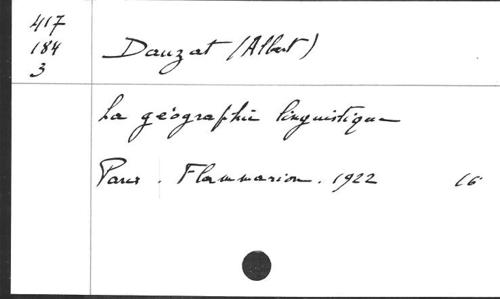 417
184
3
Dauzat (Albert)
La géographie linguistique
Paris. Flammarion. 1922 16